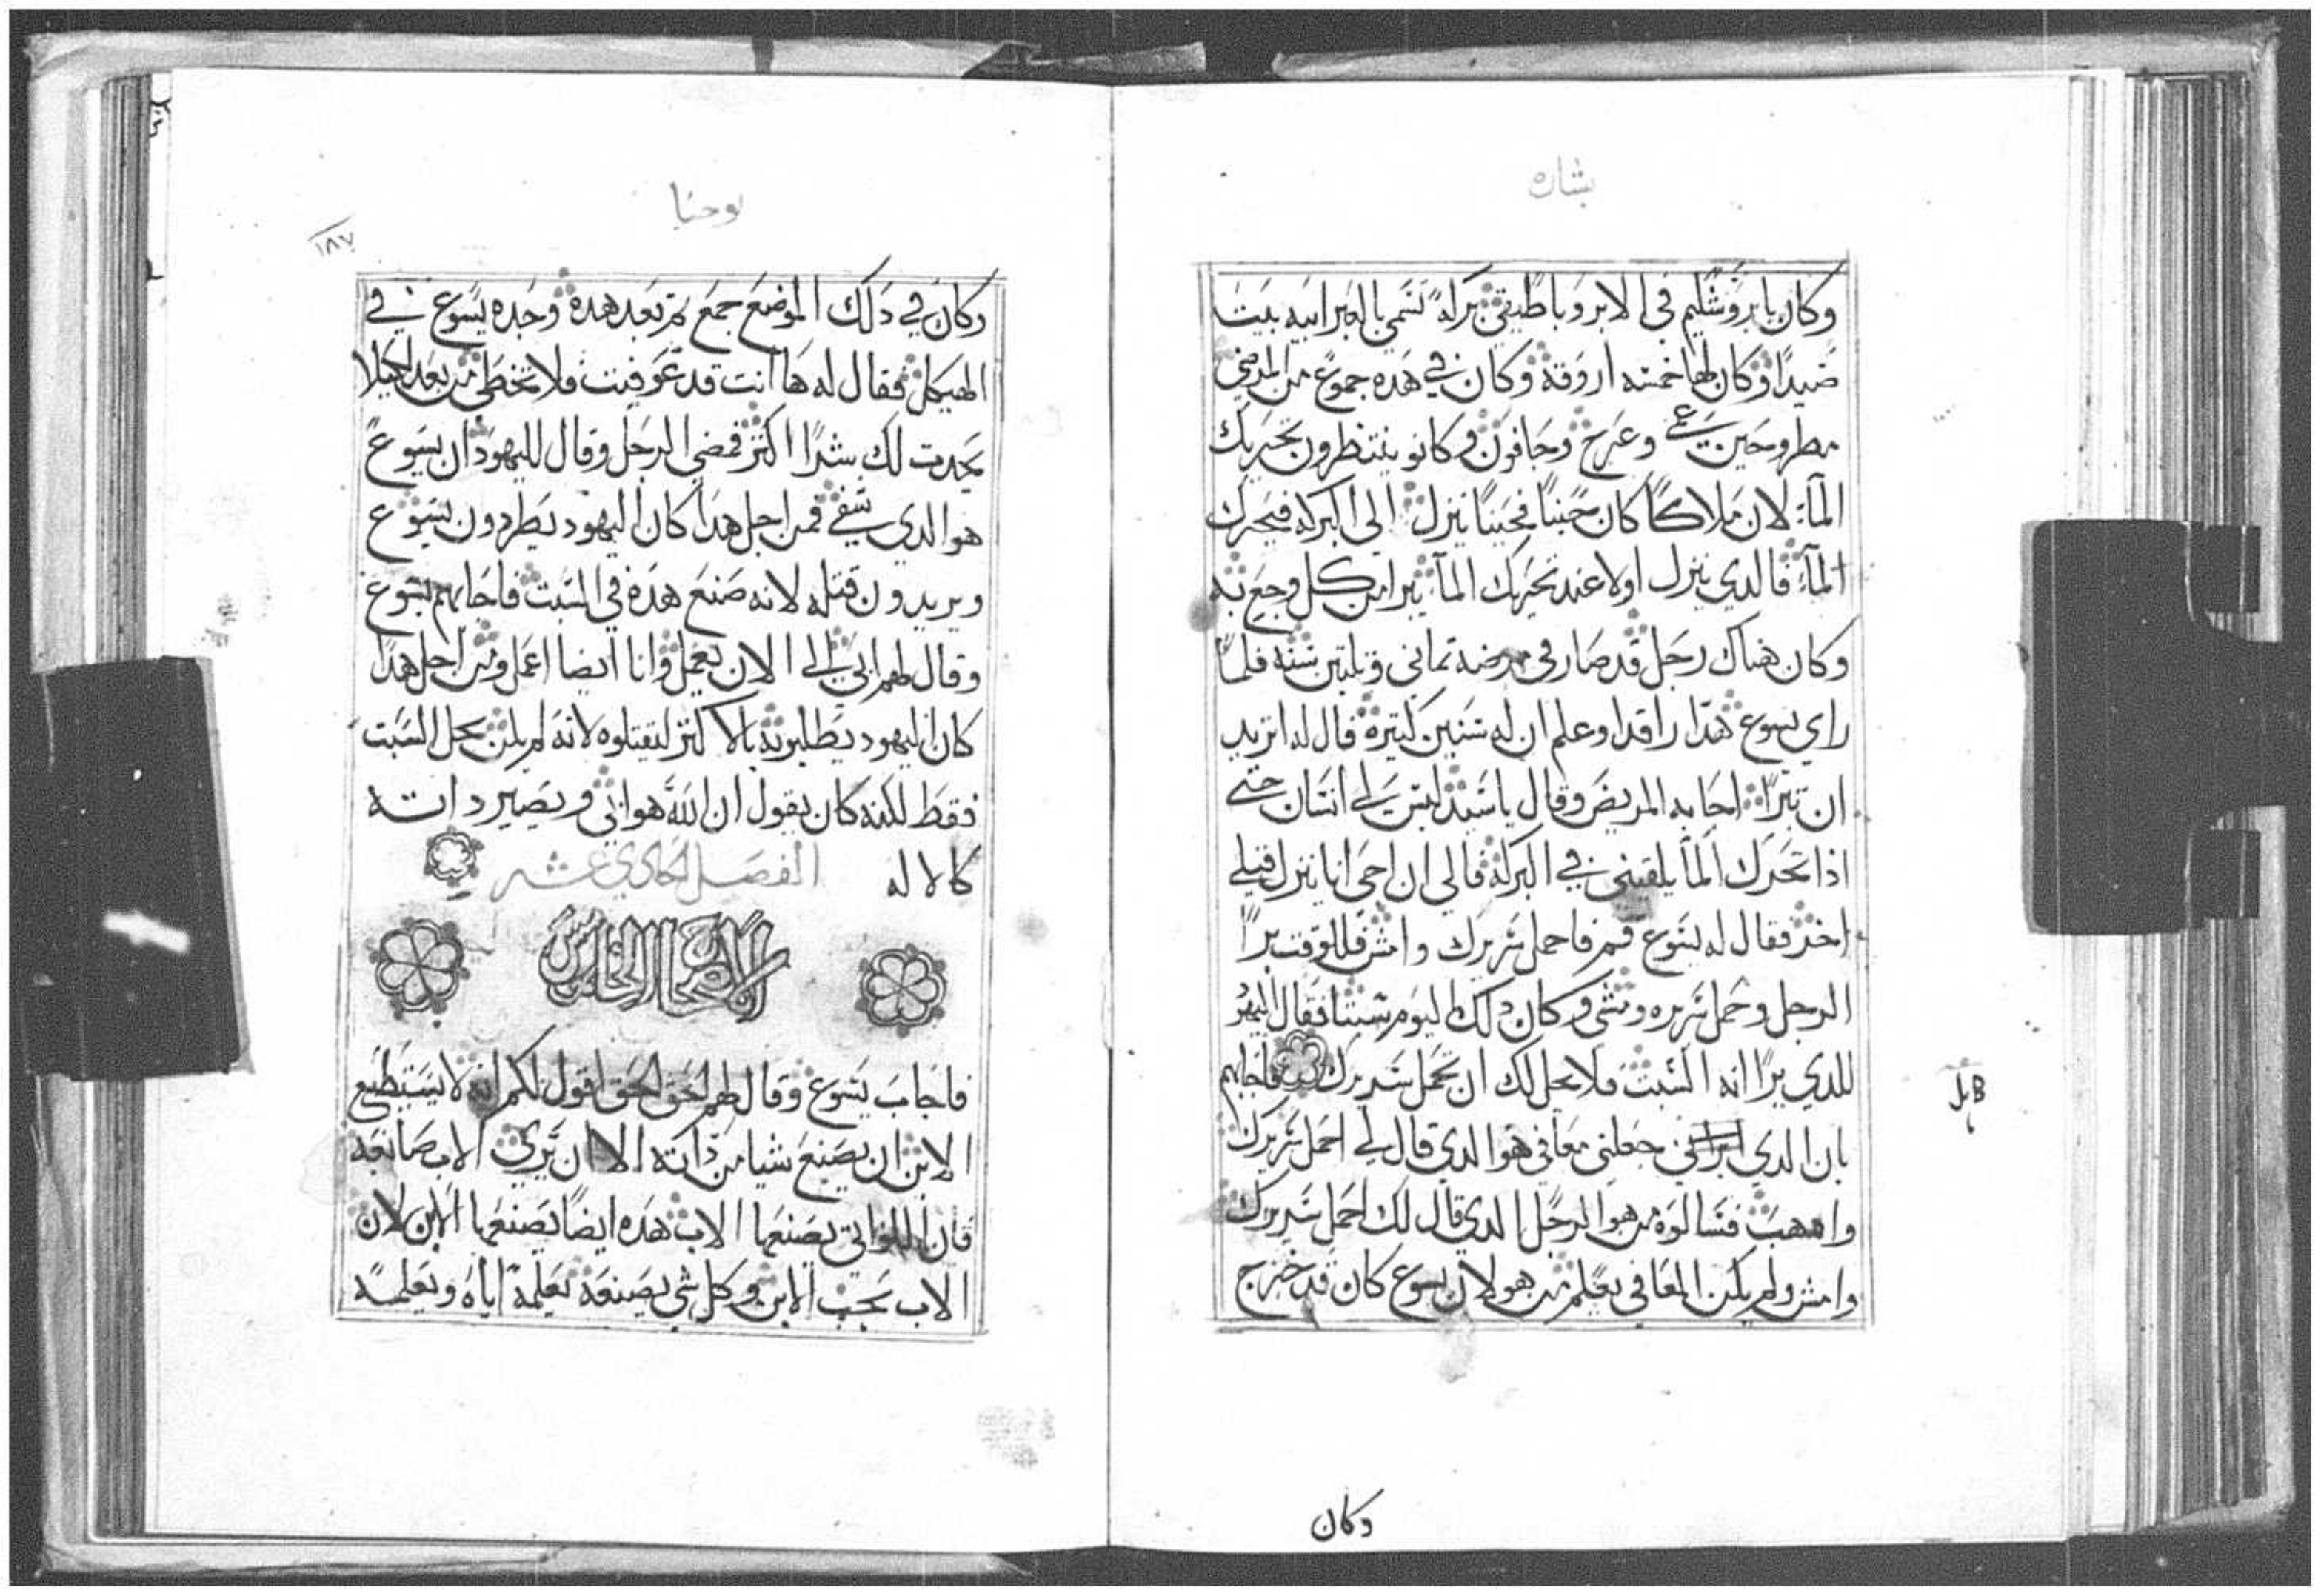 بشاره
وكان بايروشليم في الابروباطيقي بركه تسمي بالعبرانيه بيت
صيدا وكان لها خمسه اروقه وكان في هده جموع من المرضي
مطروحين عمي وعرج وجافون وكانو ينتظرون تحريك
المآء لان ملاكًا كان حينًا فحينًا ينزل الي البركه فيحرك
المآء فالدي ينزل اولا عند تحريك المآء يبرا من كل وجع به
وكان هناك رجل قد صار في مرضه تماني وتلتين سنه فلما
راي يسوع هدا راقدا وعلم ان له سنين كتيره قال له اتريد
ان تبرا اجابه المريض وقال ياسيد ليس لي انسان حتي
ادا تحرك المآ يلقيني في البركه فالي ان اجي انا ينزل قبلي
اخر فقال له يسوع قم فاحمل سريرك وامش فللوقت برا
الرجل وحمل سريره ومشي وكان دلك اليوم سبتا فقال اليهود
للدي برا انه السبت فلا يحل لك ان تحمل سريرك فاجابهم
بان الدي ابراني جعلني معافي هو الدي قال لي احمل سريرك
وادهب فسالوه من هو الرجل الدي قال لك احمل سريرك
وامش ولم يكن المعافي يعلم من هو لان يسوع كان قد خرج
وكان
يوحنا
١٨٧
وكان في دلك الموضع جمع تم بعد هده وجده يسوع في
الهيكل فقال له ها انت قد عوفيت فلا تخطي من بعد لكيلا
يحدت لك شرًا اكتر فمضي الرجل وقال لليهود ان يسوع
هو الدي شفي فمن اجل هدا كان اليهود يطردون يسوع
ويريدون قتله لانه صنع هده في السبت فاجابهم يسوع
وقال لهم ابي الي الان يعمل وانا ايضا اعمل ومن اجل هدا
كان اليهود يطلبونه بالاكتر ليقتلوه لانه لم يكن يحل السبت
فقط لكنه كان يقول ان الله هو ابي ويصير داته
كالاله الفصل الحادي عشر
الاصحاح الخامس
فاجاب يسوع وقال لهم الحق الحق اقول لكم انه لا يستطيع
الابن ان يصنع شيا من داته الا ان يري الاب صانعه
فان اللواتي يصنعها الاب هده ايضًا يصنعها الابن لان
الاب يحب الابن وكل شي يصنعه يعلمه اياه ويعلمه